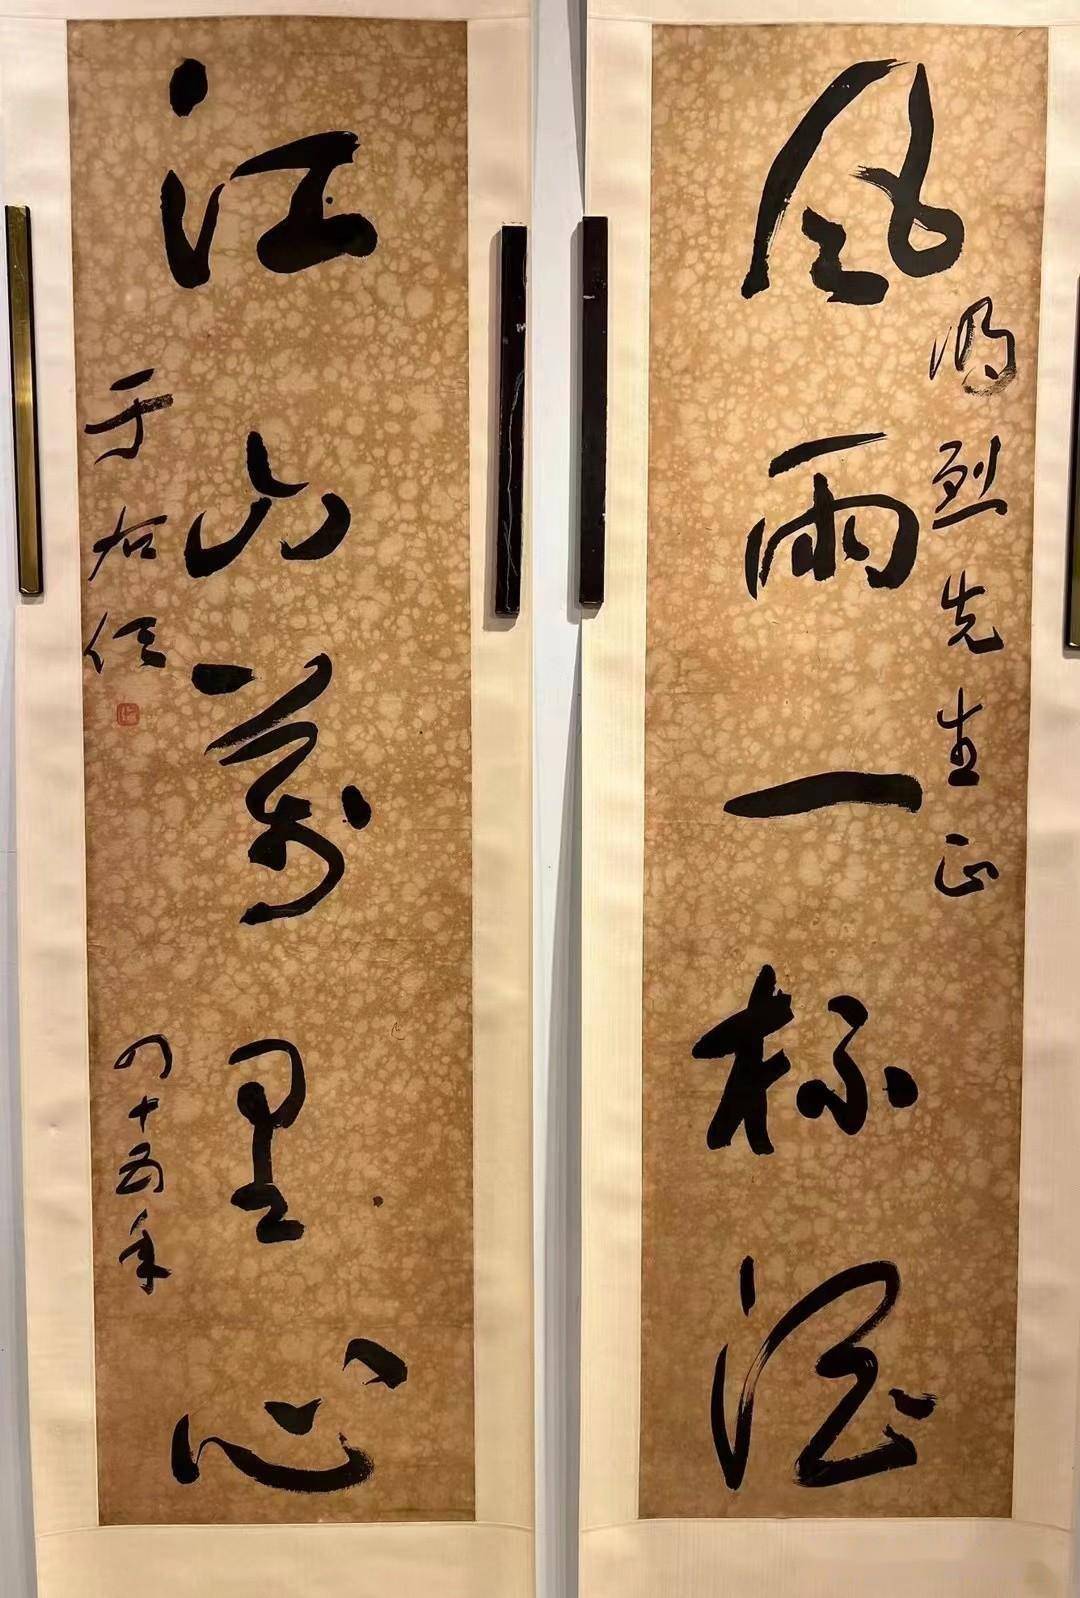 風雨一杯酒
鴻烈先生正
江山萬里心
于右任
四十五年